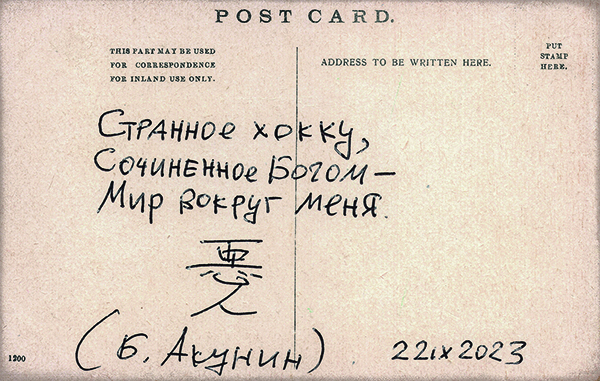 POST CARD.
THIS PART MAY BE USED
FOR CORRESPONDENCE
FOR INLAND USE ONLY.
ADDRESS TO BE WRITTEN HERE.
PUT
STAMP
HERE.
Странное хокку,
Сочиненное Богом —
Мир вокруг меня.
悪
人
(Б. Акунин)
22 IX 2023
1200